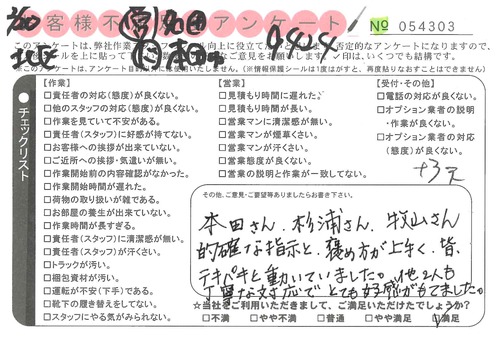 お客様不満足アンケート
№ 054303
7/20
営 多田
北区
作 本田
9424
このアンケートは、弊社作業
否定的なアンケートになりますので、
ご意見をお願いします。✓印は、いくつでも結構です。
※このアンケートは、アンケート目的以外に使用いたしません。(※情報保護シールは1度はがすと、再度貼りなおすことはできません)
チェックリスト
【作業】
□責任者の対応(態度)が良くない。
□他のスタッフの対応(態度)が良くない。
□作業を見ていて不安がある。
□責任者(スタッフ)に好感が持てない。
□お客様への挨拶が出来ていない。
□ご近所への挨拶・気遣いが無い。
□作業開始前の内容確認がなかった。
□作業開始時間が遅れた。
□荷物の取り扱いが雑である。
□お部屋の養生が出来ていない。
□作業時間が長すぎる。
□責任者(スタッフ)に清潔感が無い。
□責任者(スタッフ)が汗くさい。
□トラックが汚い。
□梱包資材が汚い。
□運転が不安(下手)である。
□靴下の履き替えをしてない。
□スタッフにやる気がみられない。
【営業】
□見積もり時間に遅れた。
□見積もり時間が長い。
□営業マンに清潔感が無い。
□営業マンが煙草くさい。
□営業マンが汗くさい。
□営業態度が良くない。
□営業の説明と作業が一致してない。
【受付・その他】
□電話の対応が良くない。
□オプション業者の説明
・作業が良くない。
□オプション業者の対応
(態度)が良くない。
+3点
その他、ご意見・ご要望等ありましたらお書き下さい。
本田さん、杉浦さん、牧山さん
的確な指示と、褒め方が上手く、皆、
テキパキと動いていました。他2人も
丁寧な対応でとても好感がもてました。
☆当社をご利用いただきまして、ご満足いただけたでしょうか?
□不満 □やや不満 □普通 □やや満足 ☑満足